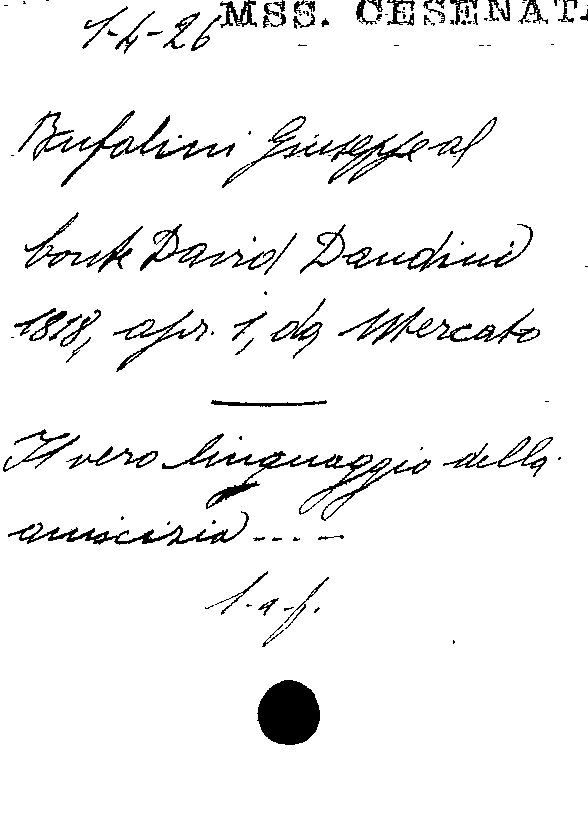 MSS. CESENAT
1-4-26
Bufalini Giuseppe al
Conte David Dandini
1818, apr. 1, da Mercato
Il vero linguaggio della
amicizia ----
l. a. f.